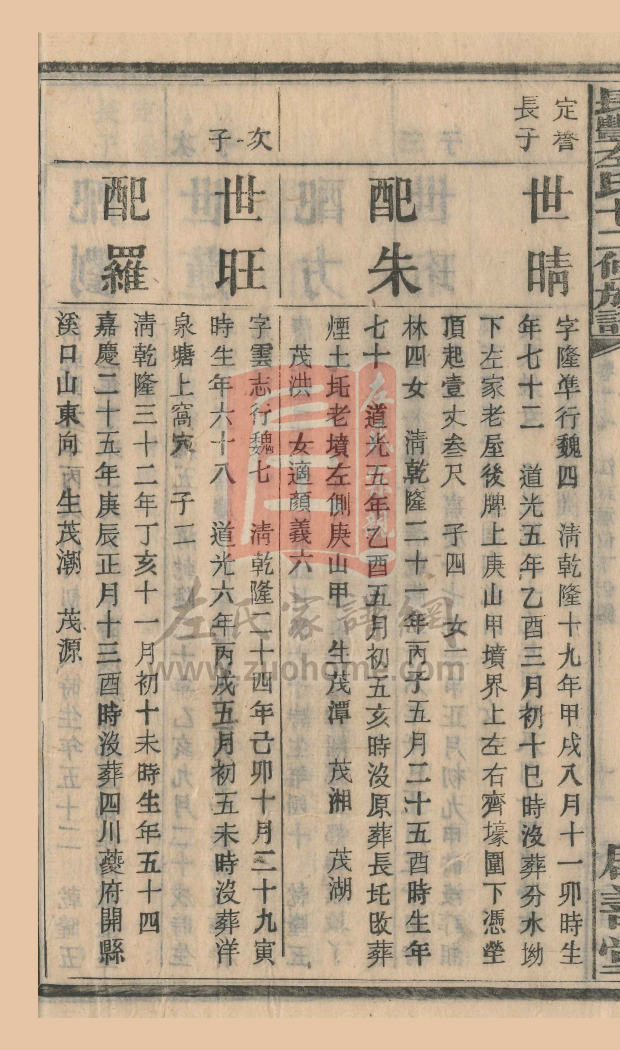 長豐左氏七二修族譜
定譽長子
世晴
字隆準行魏四 淸乾隆十九年甲戌八月十一卯時生
年七十二 道光五年乙酉三月初十巳時沒葬分水坳
下左家老屋後牌上庚山甲墳界上左右齊壕圍下憑塋
頂起壹丈叁尺 子四 女一
配朱
林四女 淸乾隆二十一年丙子五月二十五酉時生年
七十 道光五年乙酉五月初五亥時沒原葬長圫改葬
煙土圫老墳左側庚山甲 生茂潭 茂湘 茂湖
茂洪 女適顏義六
次子
世旺
字雲志行魏七 淸乾隆二十四年己卯十月二十九寅
時生年六十八 道光六年丙戌五月初五未時沒葬洋
泉塘上窩穴 子二
配羅
淸乾隆三十二年丁亥十一月初十未時生年五十四
嘉慶二十五年庚辰正月十三酉時沒葬四川夔府開縣
溪口山東向 生茂潮 茂源
左氏家譜網
www.zuohome.com